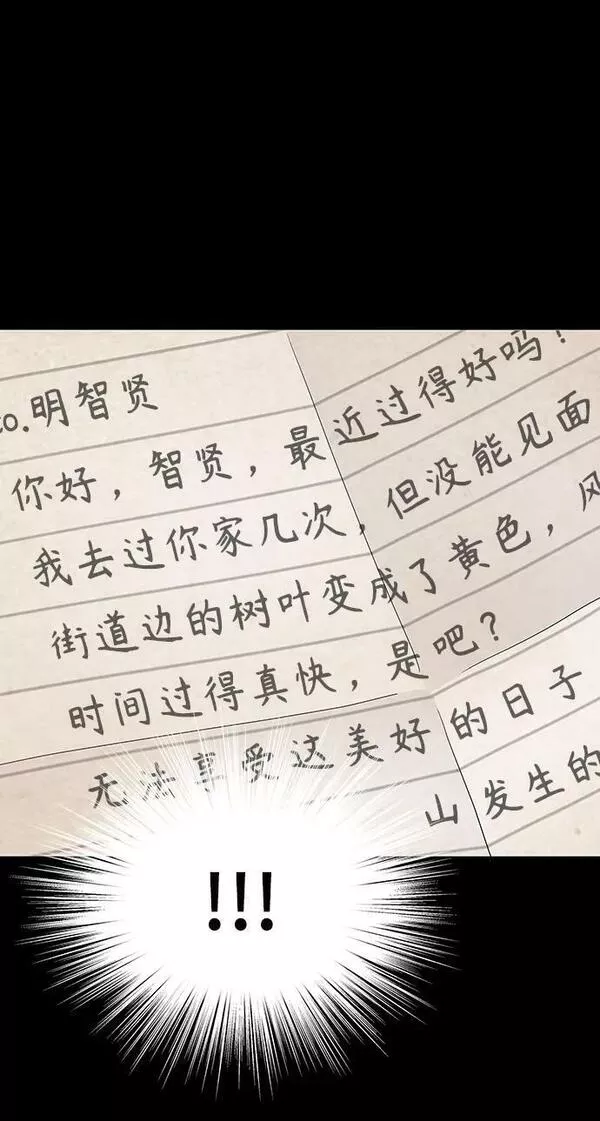 to.明智贤
你好，智贤，最近过得好吗？
我去过你家几次，但没能见面
街道边的树叶变成了黄色，风
时间过得真快，是吧？
无法享受这美好的日子
山发生的
!!!